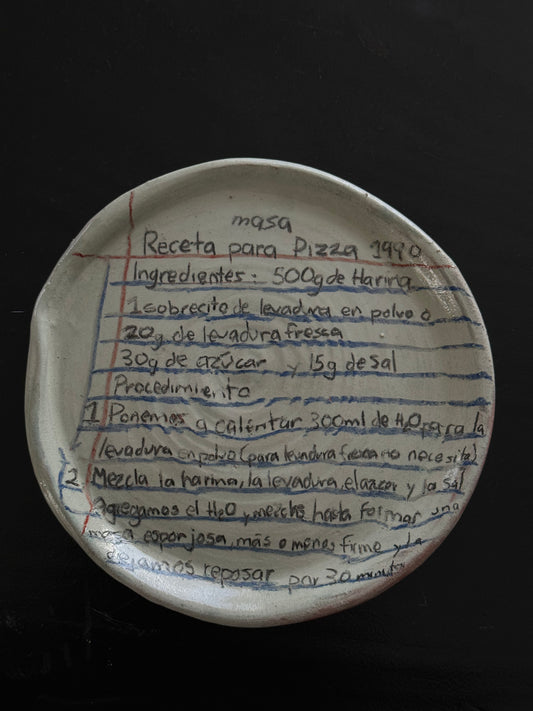 masa
Receta para Pizza 1990
Ingredientes: 500g de Harina
1 sobrecito de levadura en polvo o
20g de levadura fresca
30g de azúcar y 15g de sal
Procedimiento
1 Ponemos a caléntar 300ml de H2O para la
levadura en polvo (para levadura fresca no necesita)
2 Mezcla la harina, la levadura, el azucar y la sal
Agregamos el H2O y mezclas hasta formar una
masa esponjosa, más o menos firme y la
dejamos reposar por 30 minutos